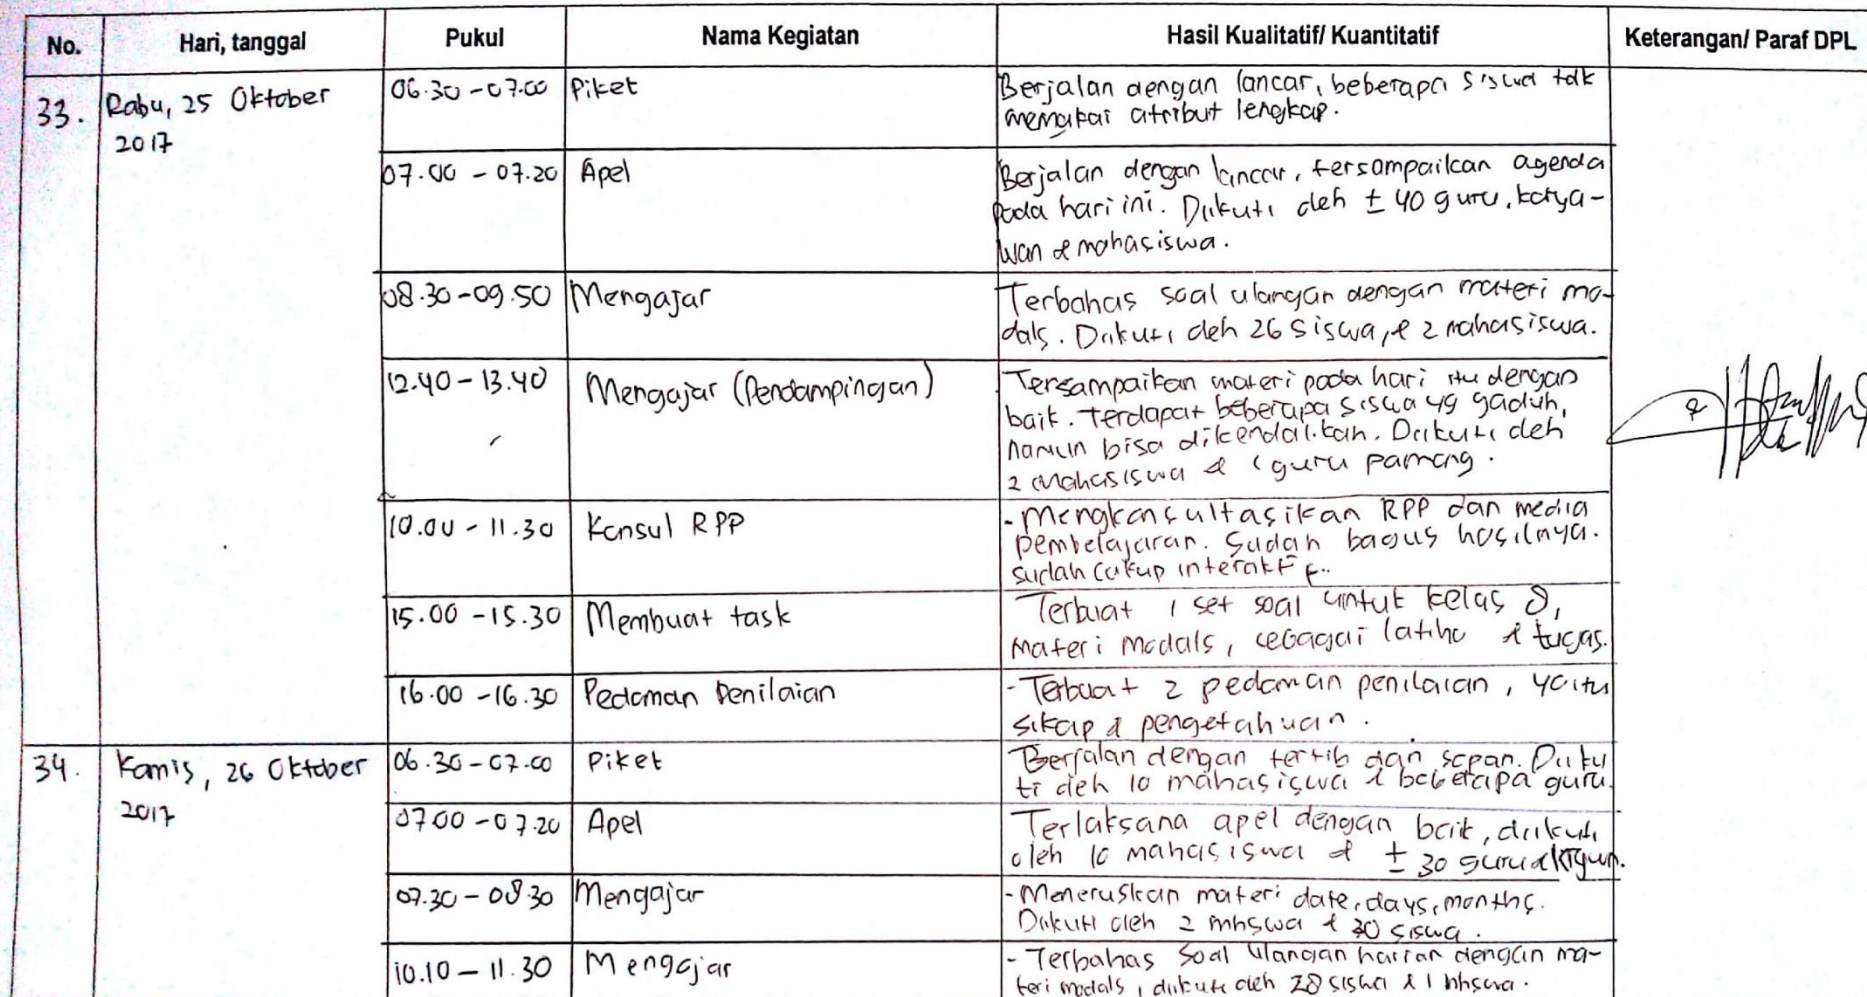 No. Hari, tanggal Pukul Nama Kegiatan Hasil Kualitatif/ Kuantitatif Keterangan/ Paraf DPL
33. Rabu, 25 Oktober
2017
06.30 - 07.00 Piket
Berjalan dengan lancar, beberapa siswa tdk
memakai atribut lengkap.
07.00 - 07.20 Apel
Berjalan dengan lancar, tersampaikan agenda
pada hari ini. Diikuti oleh ± 40 guru, karya-
wan & mahasiswa.
08.30 - 09.50 Mengajar
Terbahas soal ulangan dengan materi mo-
dals. Diikuti oleh 26 siswa, & 2 mahasiswa.
12.40 - 13.40 Mengajar (Pendampingan)
Tersampaikan materi pada hari itu dengan
baik. Terdapat beberapa siswa yg gaduh,
namun bisa dikendalikan. Diikuti oleh
2 mahasiswa & 1 guru pamong.
10.00 - 11.30 Konsul RPP
- Mengkonsultasikan RPP dan media
pembelajaran. Sudah bagus hasilnya.
sudah cukup interaktif.
15.00 - 15.30 Membuat task
Terbuat 1 set soal untuk kelas 8,
materi modals, sebagai latihn & tugas.
16.00 - 16.30 Pedoman Penilaian
- Terbuat 2 pedoman penilaian, yaitu
sikap & pengetahuan.
34. Kamis, 26 Oktober
2017
06.30 - 07.00 Piket
Berjalan dengan tertib dan sopan. Diiku
ti oleh 10 mahasiswa & beberapa guru.
07.00 - 07.20 Apel
Terlaksana apel dengan baik, diikuti
oleh 10 mahasiswa & ± 30 guru &
07.30 - 08.30 Mengajar
- Meneruskan materi date, days, months.
Diikuti oleh 2 mhswa & 30 siswa.
10.10 - 11.30 Mengajar
- Terbahas soal ulangan harian dengan ma-
teri modals, diikuti oleh 28 siswa & 1 mhswa.